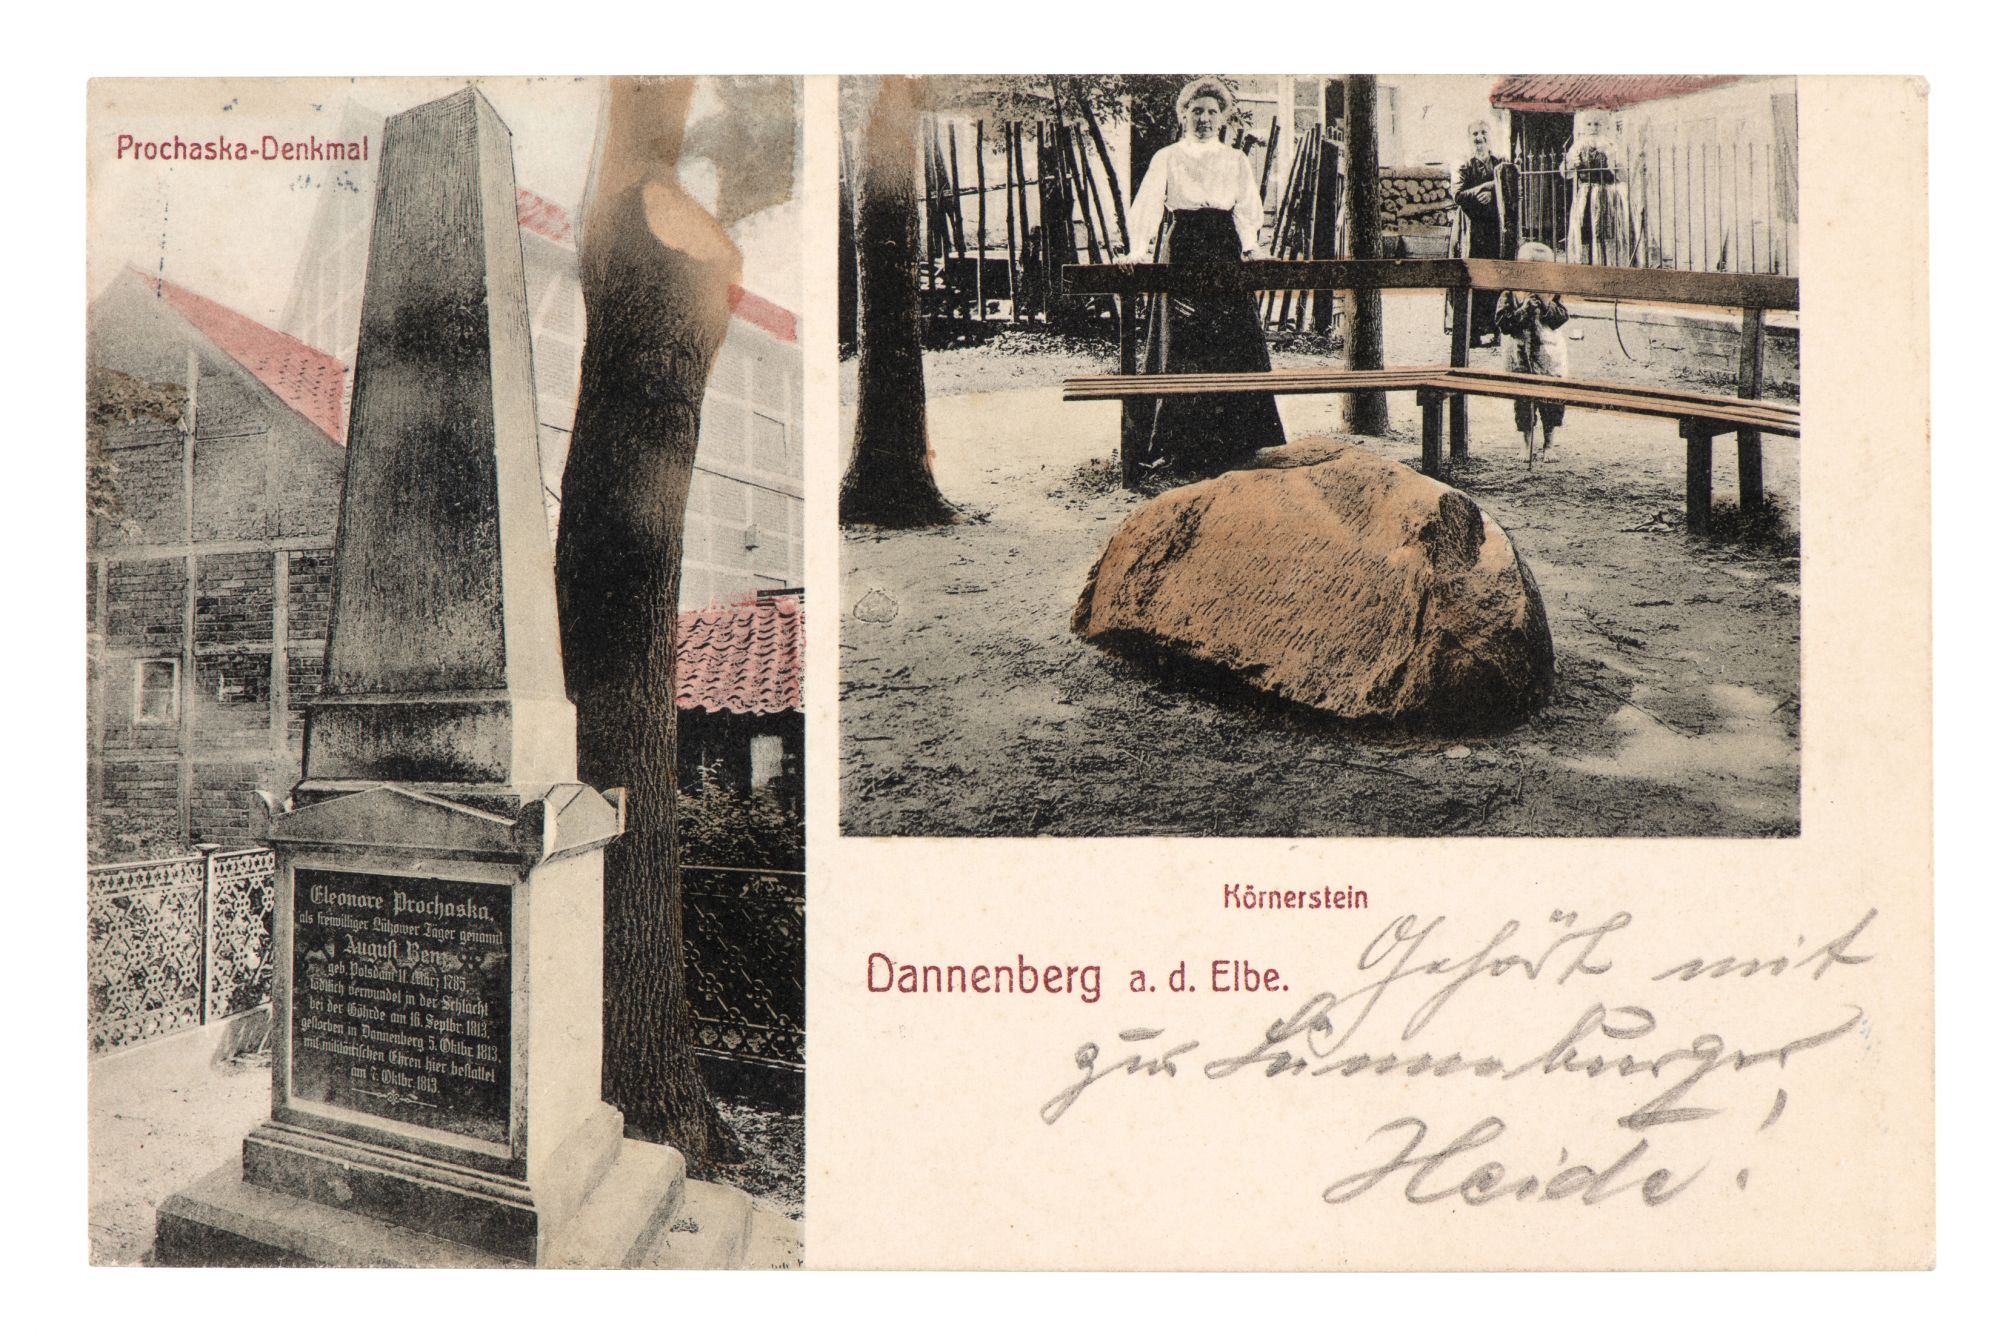 Prochaska-Denkmal
Eleonore Prochaska,
als freiwilliger Lützower Jäger genannt
August Renz
geb. Potsdam 11. März 1785.
tödtlich verwundet in der Schlacht
bei der Göhrde am 16. Septbr. 1813,
gestorben in Dannenberg 5. Oktbr. 1813,
mit militärischen Ehren hier bestattet
am 7. Oktbr. 1813.
Körnerstein
Dannenberg a. d. Elbe.
Gehört mit
zur Lünneburger
Heide!